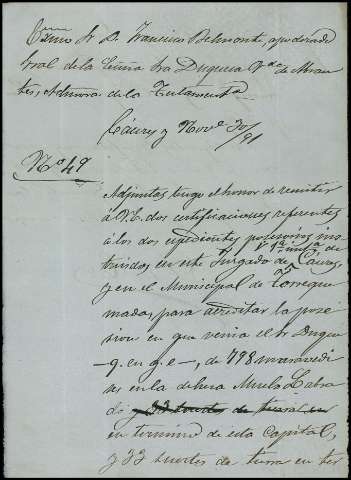 Excmo Sr D. Francisco Belmonte, apoderado
gral de la Excma Sra Duquesa Vda de Abran-
tes, Admora de la Testamentª
Cáceres y Nove 30/91
Nº 49
Adjuntas tengo el honor de remitir
á V.E. dos certificaciones referentes
á los dos expedientes posesorios ins-
truidos en este Juzgado de 1ª instª de Cáceres,
y en el Municipal de Torreque-
mada, para acreditar la pose-
sion en que venia el Sr Duque
-q. en g. e-, de 798 maravedi-
ses en la dehesa Muelo Labra
do y 33 suertes de tierra en
en termino de esta Capital,
y 33 suertes de tierra en ter